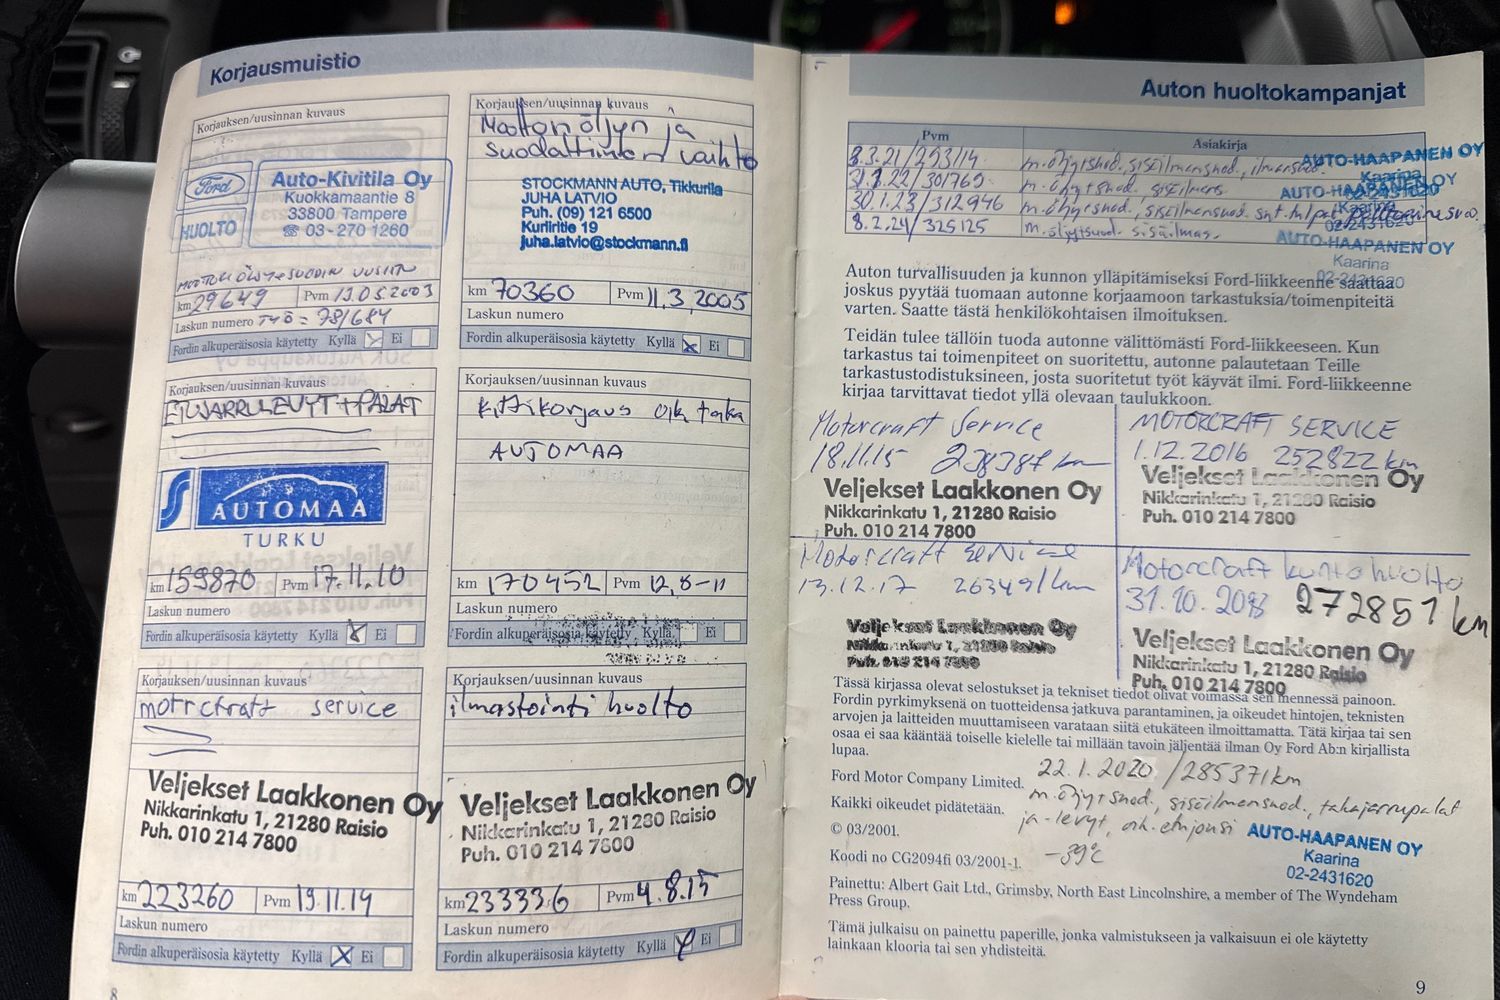 Korjausmuistio
Korjauksen/uusinnan kuvaus
Ford
HUOLTO
Auto-Kivitila Oy
Kuokkamaantie 8
33800 Tampere
☎ 03-270 1260
MOOTTORIÖLJY+SUODIN UUSITTU
km 29649 Pvm 19.05.2003
Laskun numero TYÖ = 781684
Fordin alkuperäisosia käytetty Kyllä Ei
Korjauksen/uusinnan kuvaus
Moottoriöljyn ja
suodattimen vaihto
STOCKMANN AUTO, Tikkurila
JUHA LATVIO
Puh. (09) 121 6500
Kuriiritie 19
juha.latvio@stockmann.fi
km 70360 Pvm 11.3.2005
Laskun numero
Fordin alkuperäisosia käytetty Kyllä Ei
Korjauksen/uusinnan kuvaus
ETUJARRULEVYT+PALAT
AUTOMAA
TURKU
km 159870 Pvm 17.11.10
Laskun numero
Fordin alkuperäisosia käytetty Kyllä Ei
Korjauksen/uusinnan kuvaus
kittikorjaus oik taka
AUTOMAA
km 170452 Pvm 12.8-11
Laskun numero
Fordin alkuperäisosia käytetty Kyllä Ei
Korjauksen/uusinnan kuvaus
motrctraft service
Veljekset Laakkonen Oy
Nikkarinkatu 1, 21280 Raisio
Puh. 010 214 7800
km 223260 Pvm 19.11.14
Laskun numero
Fordin alkuperäisosia käytetty Kyllä Ei
Korjauksen/uusinnan kuvaus
ilmastointi huolto
Veljekset Laakkonen Oy
Nikkarinkatu 1, 21280 Raisio
Puh. 010 214 7800
km 233336 Pvm 4.8.15
Laskun numero
Fordin alkuperäisosia käytetty Kyllä Ei
8
Auton huoltokampanjat
Pvm Asiakirja
8.3.21/293114 m.öljytsuod. sisäilmansuod., ilmansuod.
31.1.22/301769 m.öljytsuod. sisäilmans.
30.1.23/312946 m.öljytsuod., sisäilmansuod.
8.2.24/325125 m.öljytsuod. sisäilmas.
AUTO-HAAPANEN OY
Kaarina
AUTO-HAAPANEN OY
02-2431620
Kaarina
02-2431620
AUTO-HAAPANEN OY
Kaarina
02-2431620
Auton turvallisuuden ja kunnon ylläpitämiseksi Ford-liikkeenne saattaa
joskus pyytää tuomaan autonne korjaamoon tarkastuksia/toimenpiteitä
varten. Saatte tästä henkilökohtaisen ilmoituksen.
Teidän tulee tällöin tuoda autonne välittömästi Ford-liikkeeseen. Kun
tarkastus tai toimenpiteet on suoritettu, autonne palautetaan Teille
tarkastustodistuksineen, josta suoritetut työt käyvät ilmi. Ford-liikkeenne
kirjaa tarvittavat tiedot yllä olevaan taulukkoon.
Motorcraft Service
18.11.15 238387 km
Veljekset Laakkonen Oy
Nikkarinkatu 1, 21280 Raisio
Puh. 010 214 7800
MOTORCRAFT SERVICE
1.12.2016 252822 km
Veljekset Laakkonen Oy
Nikkarinkatu 1, 21280 Raisio
Puh. 010 214 7800
Motorcraft service
13.12.17 263491 km
Veljekset Laakkonen Oy
Nikkarinkatu 1, 21280 Raisio
Puh. 010 214 7800
Motorcraft kuntohuolto
31.10.2018 272851 km
Veljekset Laakkonen Oy
Nikkarinkatu 1, 21280 Raisio
Puh. 010 214 7800
Tässä kirjassa olevat selostukset ja tekniset tiedot olivat voimassa sen mennessä painoon.
Fordin pyrkimyksenä on tuotteidensa jatkuva parantaminen, ja oikeudet hintojen, teknisten
arvojen ja laitteiden muuttamiseen varataan siitä etukäteen ilmoittamatta. Tätä kirjaa tai sen
osaa ei saa kääntää toiselle kielelle tai millään tavoin jäljentää ilman Oy Ford Ab:n kirjallista
lupaa.
22.1.2020 /285371km
Ford Motor Company Limited.
m.öljytsuod., sisäilmansuod., takajarrupalat
Kaikki oikeudet pidätetään.
ja-levyt, oik. etujousi
© 03/2001.
AUTO-HAAPANEN OY
Kaarina
02-2431620
-39°C
Koodi no CG2094fi 03/2001-1.
Painettu: Albert Gait Ltd., Grimsby, North East Lincolnshire, a member of The Wyndeham
Press Group.
Tämä julkaisu on painettu paperille, jonka valmistukseen ja valkaisuun ei ole käytetty
lainkaan klooria tai sen yhdisteitä.
9